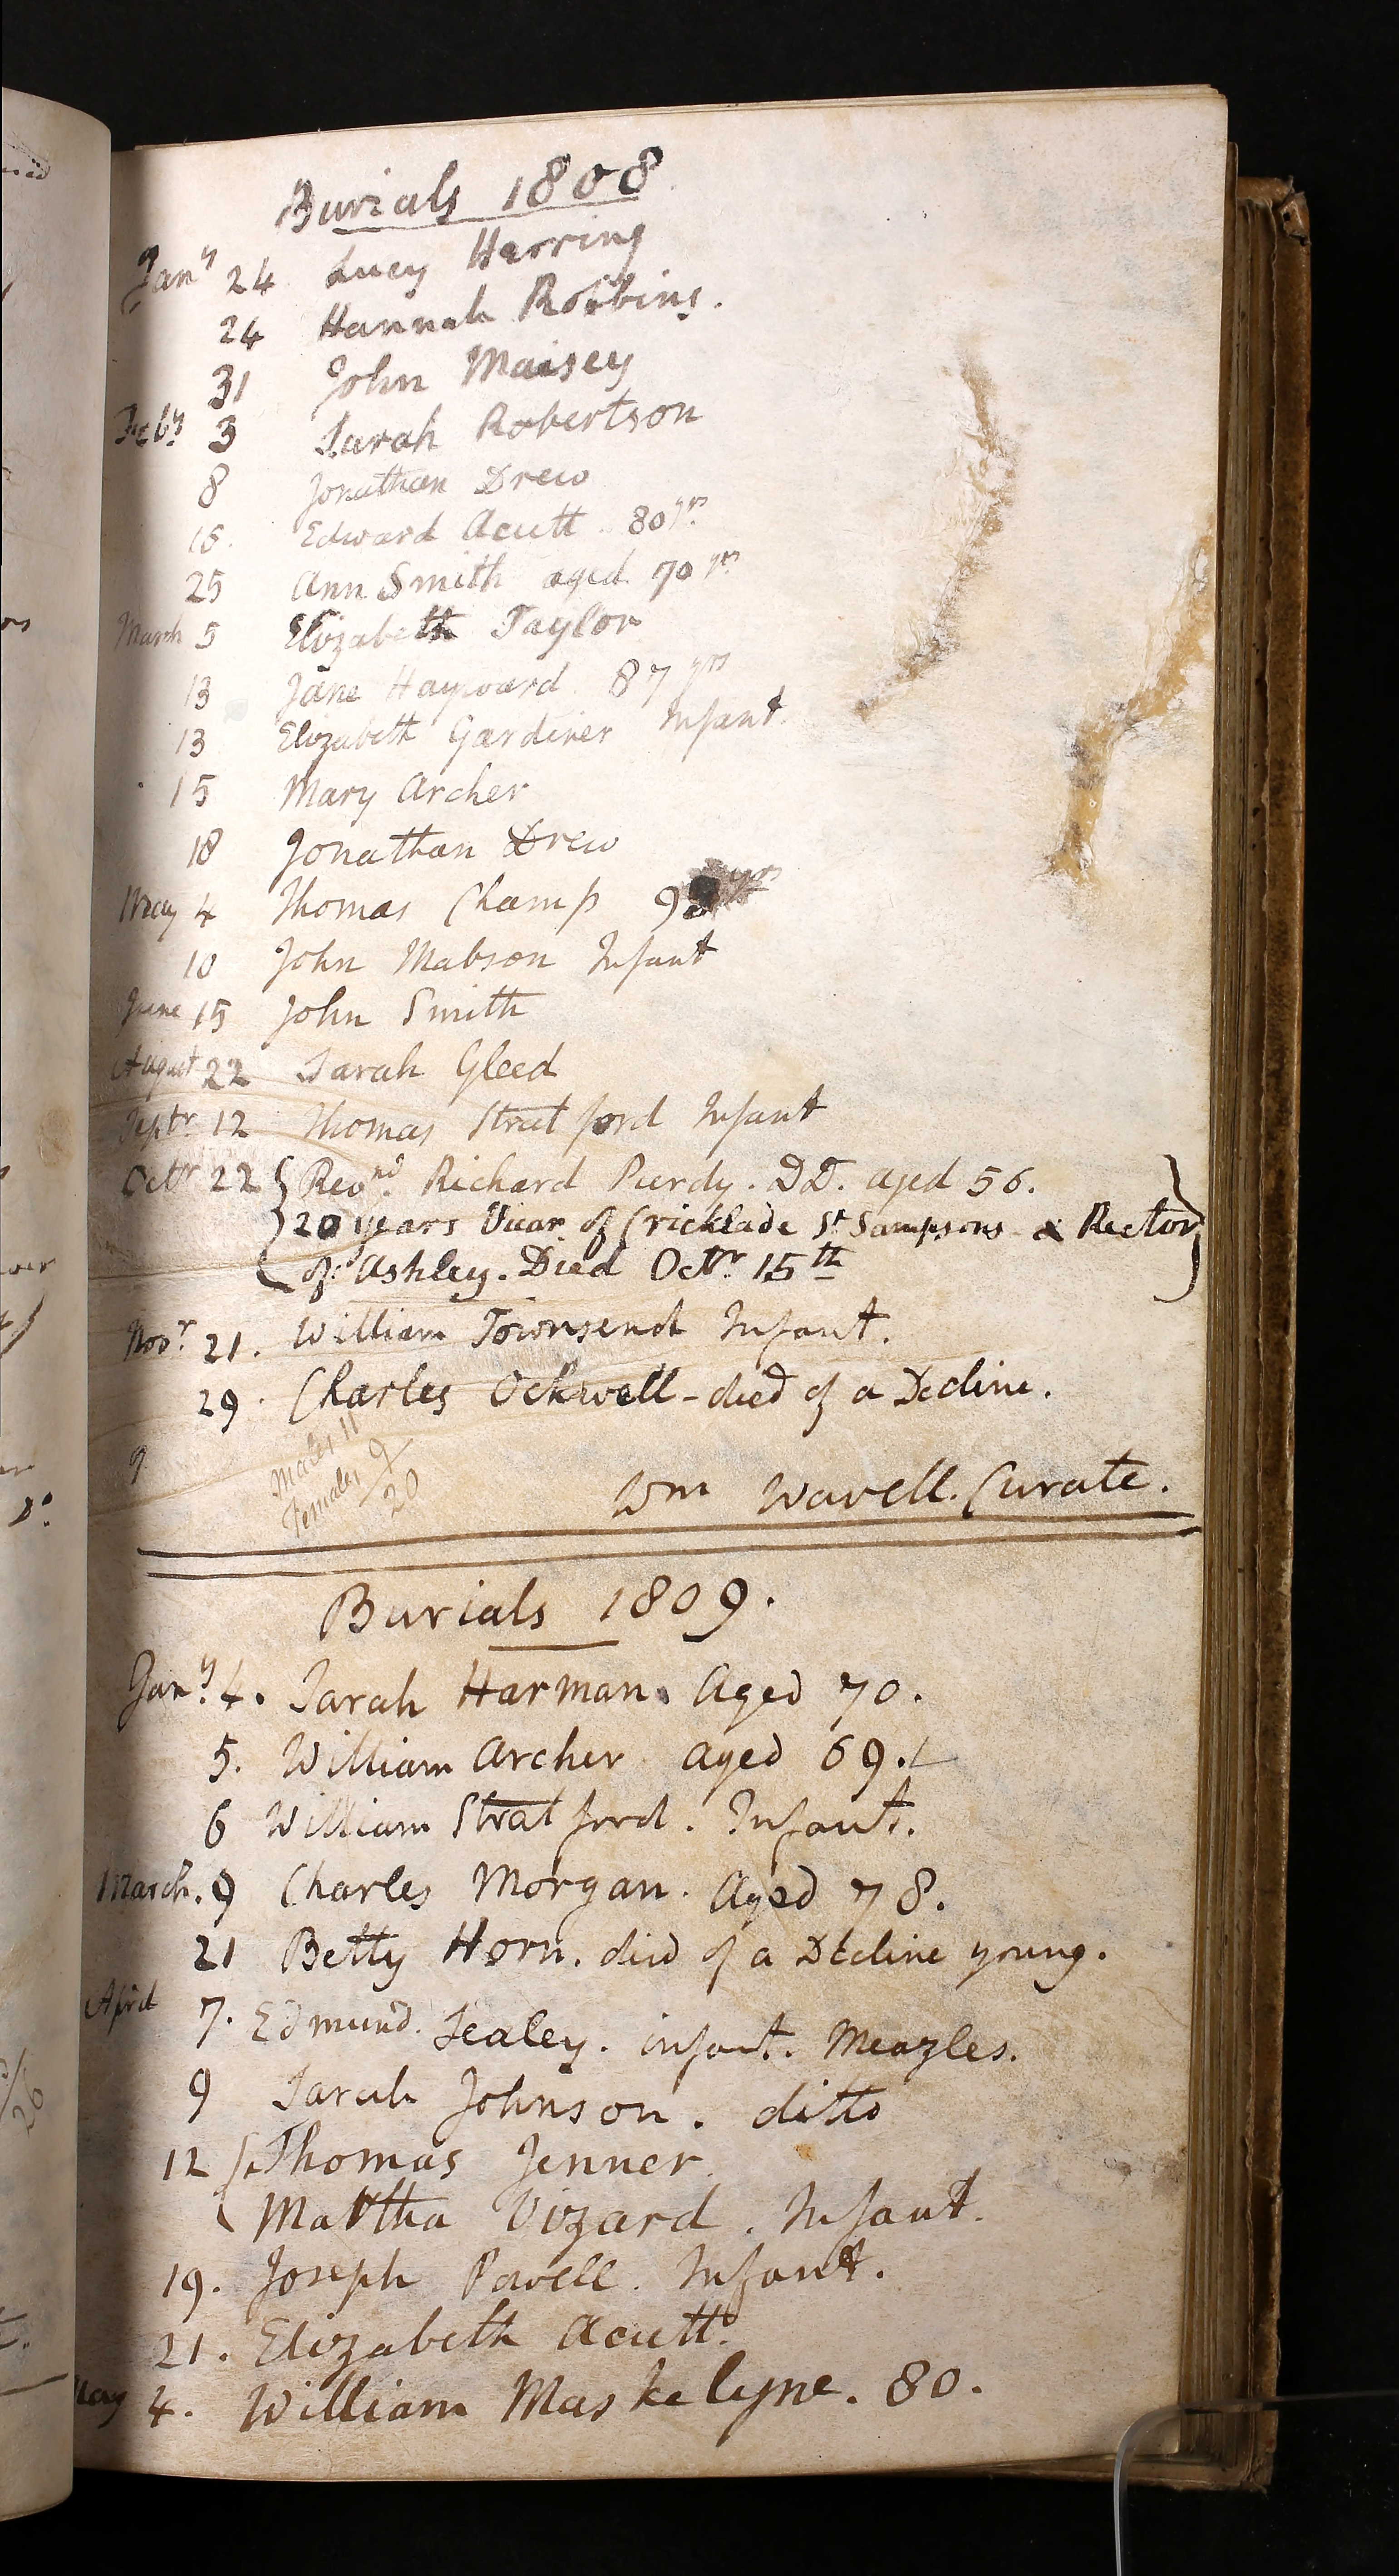 Burials 1808
Jany 24 Lucy Harring
24 Hannah Robbins.
31 John Maisey
Feby 3 Sarah Robertson
8 Jonathan Drew
15. Edward Acutt. 80 yrs
25 Ann Smith aged 70 yrs
March 5 Elizabeth Taylor
13 Jane Hayward. 87 yrs
13 Elizabeth Gardiner Infant.
15 Mary Archer
18 Jonathan Drew
May 4 Thomas Champ yrs
10 John Mabson Infant
June 15 John Smith
August 22 Sarah Gleed
Septr. 12 Thomas Stratford Infant
Octr 22 Revnd. Richard Purdy. DD. aged 56.
20 years Vicar of Cricklade St Sampsons & Rector
of Ashley. Died Octr. 15th
Novr. 21. William Townsend Infant.
29. Charles Ockwell - died of a Decline.
9
Males 11
Females 9
20
Wm Wavell. Curate.
Burials 1809.
Jany. 4. Sarah Harman. Aged 70.
5. William Archer aged 69.
6 William Stratford. Infant.
March. 9 Charles Morgan. Aged 78.
21 Betty Horn. died of a Decline young.
April 7. Edmund. Sealey. infant. Meazles.
9 Sarah Johnson. ditto
12 Thomas Jenner.
Martha Vizard. Infant.
19. Joseph Powell. Infant.
21. Elizabeth Acutt.
May 4. William Maskelyne. 80.